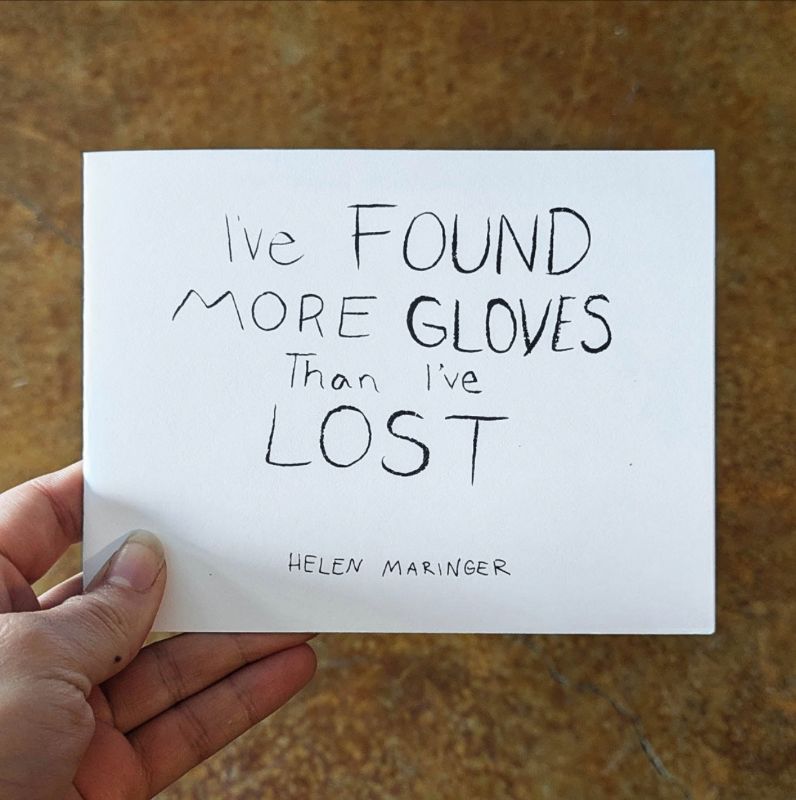 I've FOUND
MORE GLOVES
Than I've
LOST
HELEN MARINGER